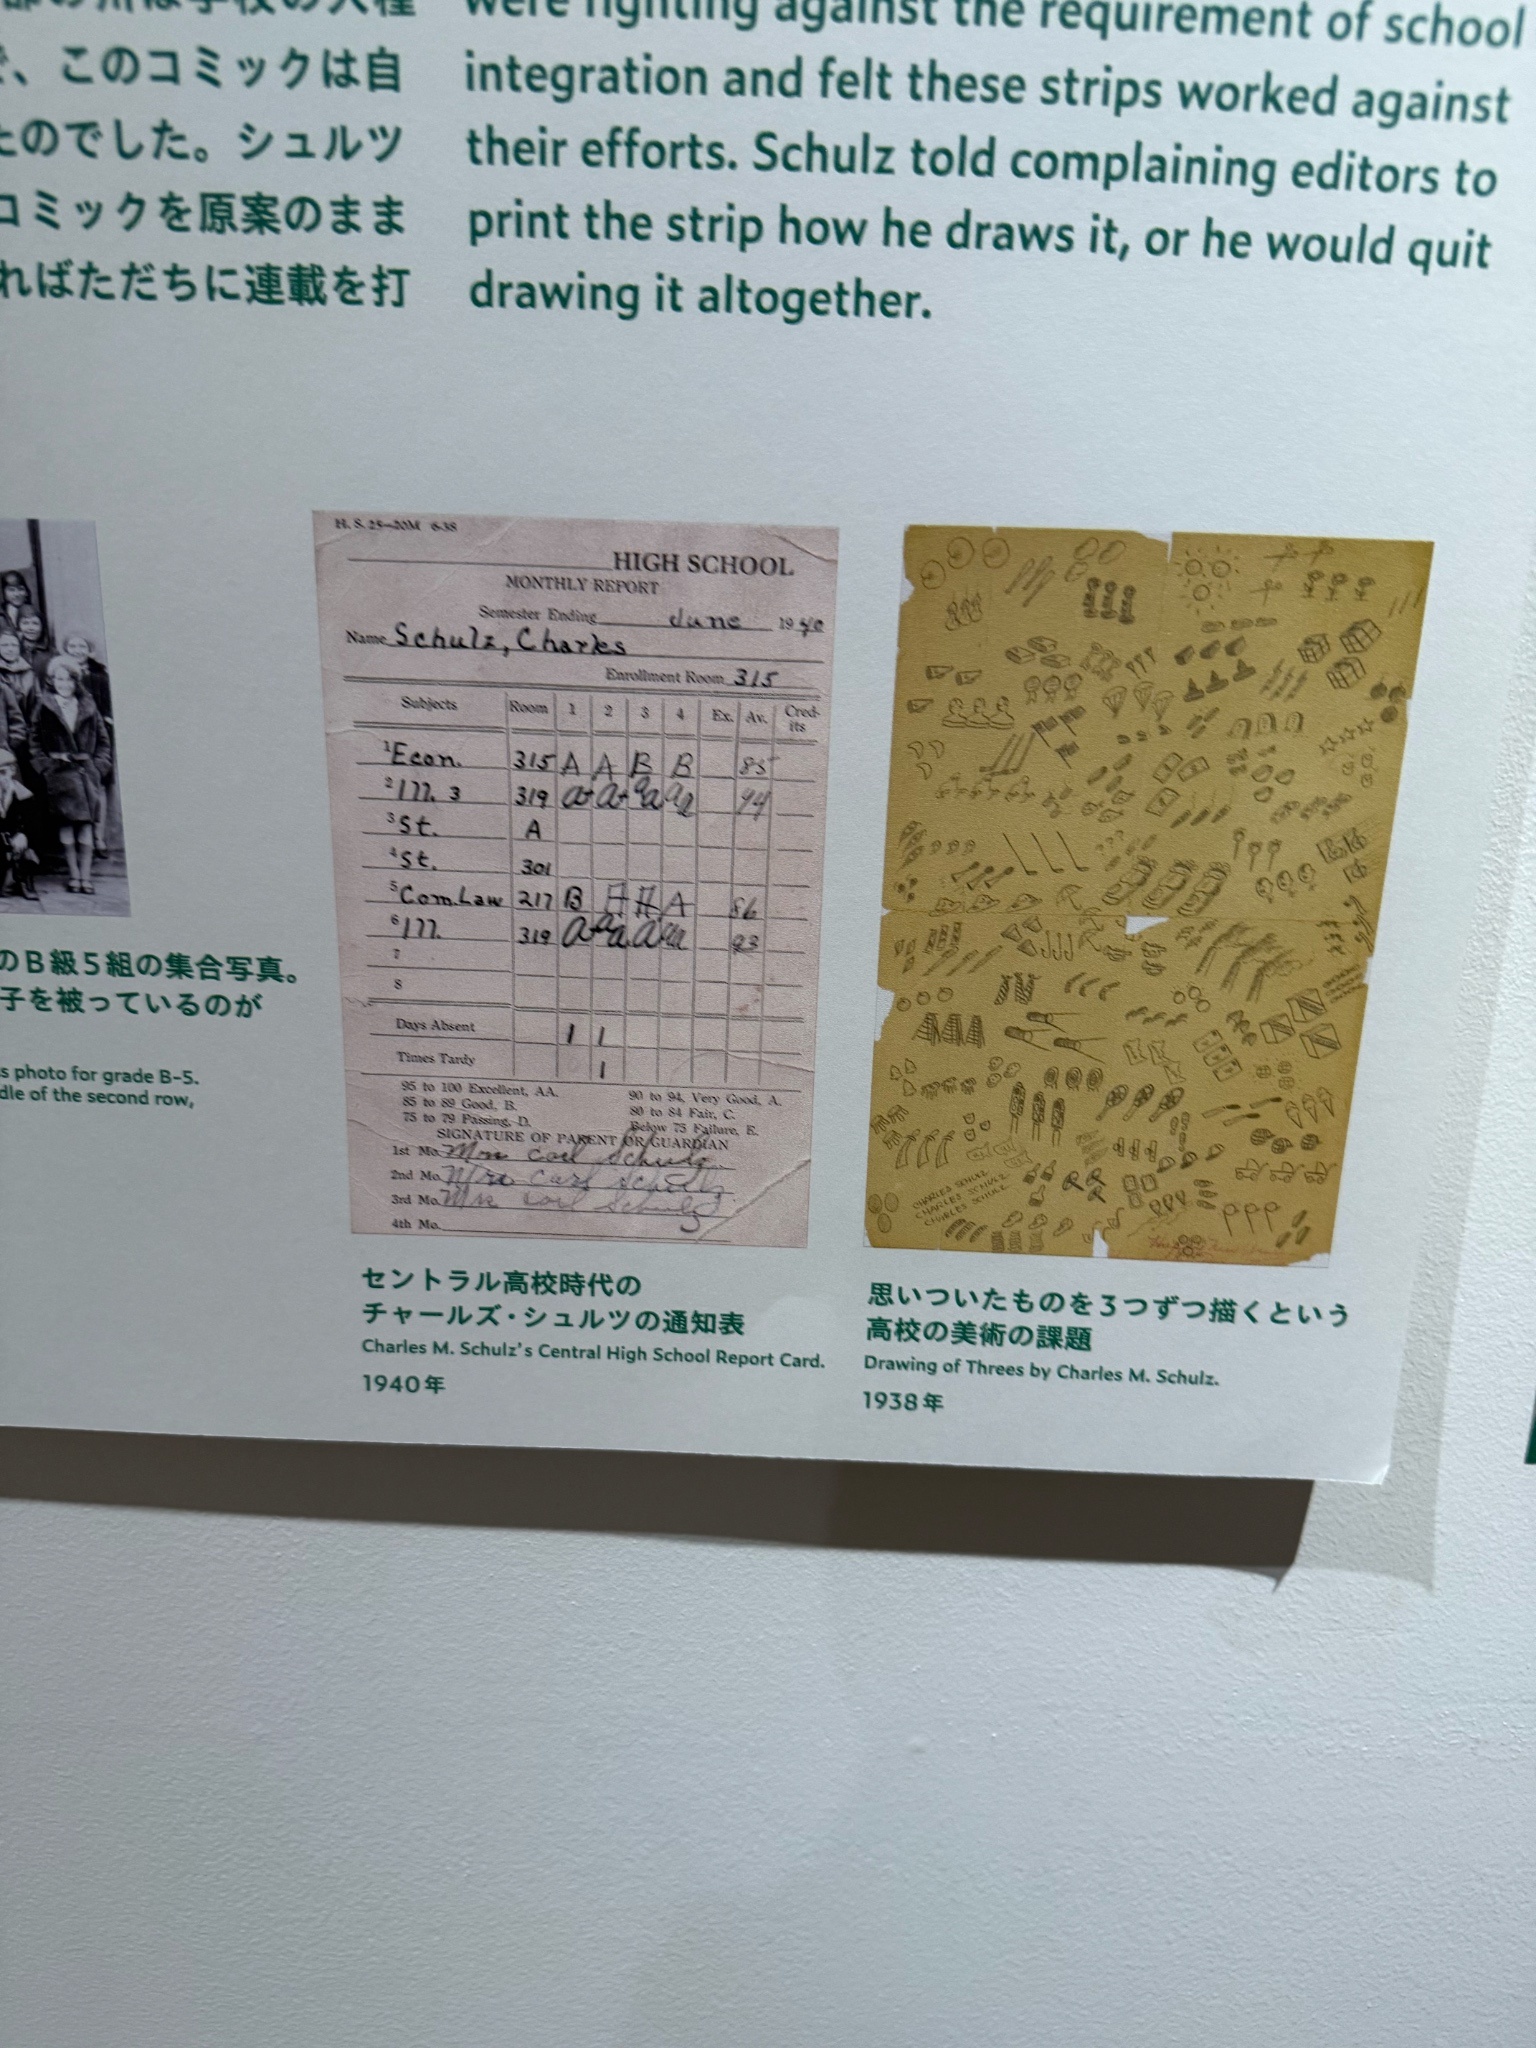 、このコミックは自
たのでした。シュルツ
コミックを原案のまま
ればただちに連載を打
were fighting against the requirement of school
integration and felt these strips worked against
their efforts. Schulz told complaining editors to
print the strip how he draws it, or he would quit
drawing it altogether.
のB級5組の集合写真。
子を被っているのが
s photo for grade B-5.
dle of the second row,
H. S. 25—20M 6-38
HIGH SCHOOL
MONTHLY REPORT
Semester Ending June 1940
Name Schulz, Charles
Enrollment Room 315
Subjects Room 1 2 3 4 Ex. Av. Cred-its
1 Econ. 315 A A B B 85
2 M. 3 319 94
3 St. A
4 St. 301
5 Com. Law 217 B A 86
6 M. 319 93
7
8
Days Absent 1 1
Times Tardy 1
95 to 100 Excellent, AA. 90 to 94, Very Good, A.
85 to 89 Good, B. 80 to 84 Fair, C.
75 to 79 Passing, D. Below 75 Failure, E.
SIGNATURE OF PARENT OR GUARDIAN
1st Mo. Mrs Carl Schulz
2nd Mo. Mrs Carl Schulz
3rd Mo. Mrs Carl Schulz
4th Mo.
セントラル高校時代の
チャールズ・シュルツの通知表
Charles M. Schulz's Central High School Report Card.
1940年
CHARLES SCHULZ
CHARLES SCHULZ
CHARLES SCHULZ
思いついたものを3つずつ描くという
高校の美術の課題
Drawing of Threes by Charles M. Schulz.
1938年